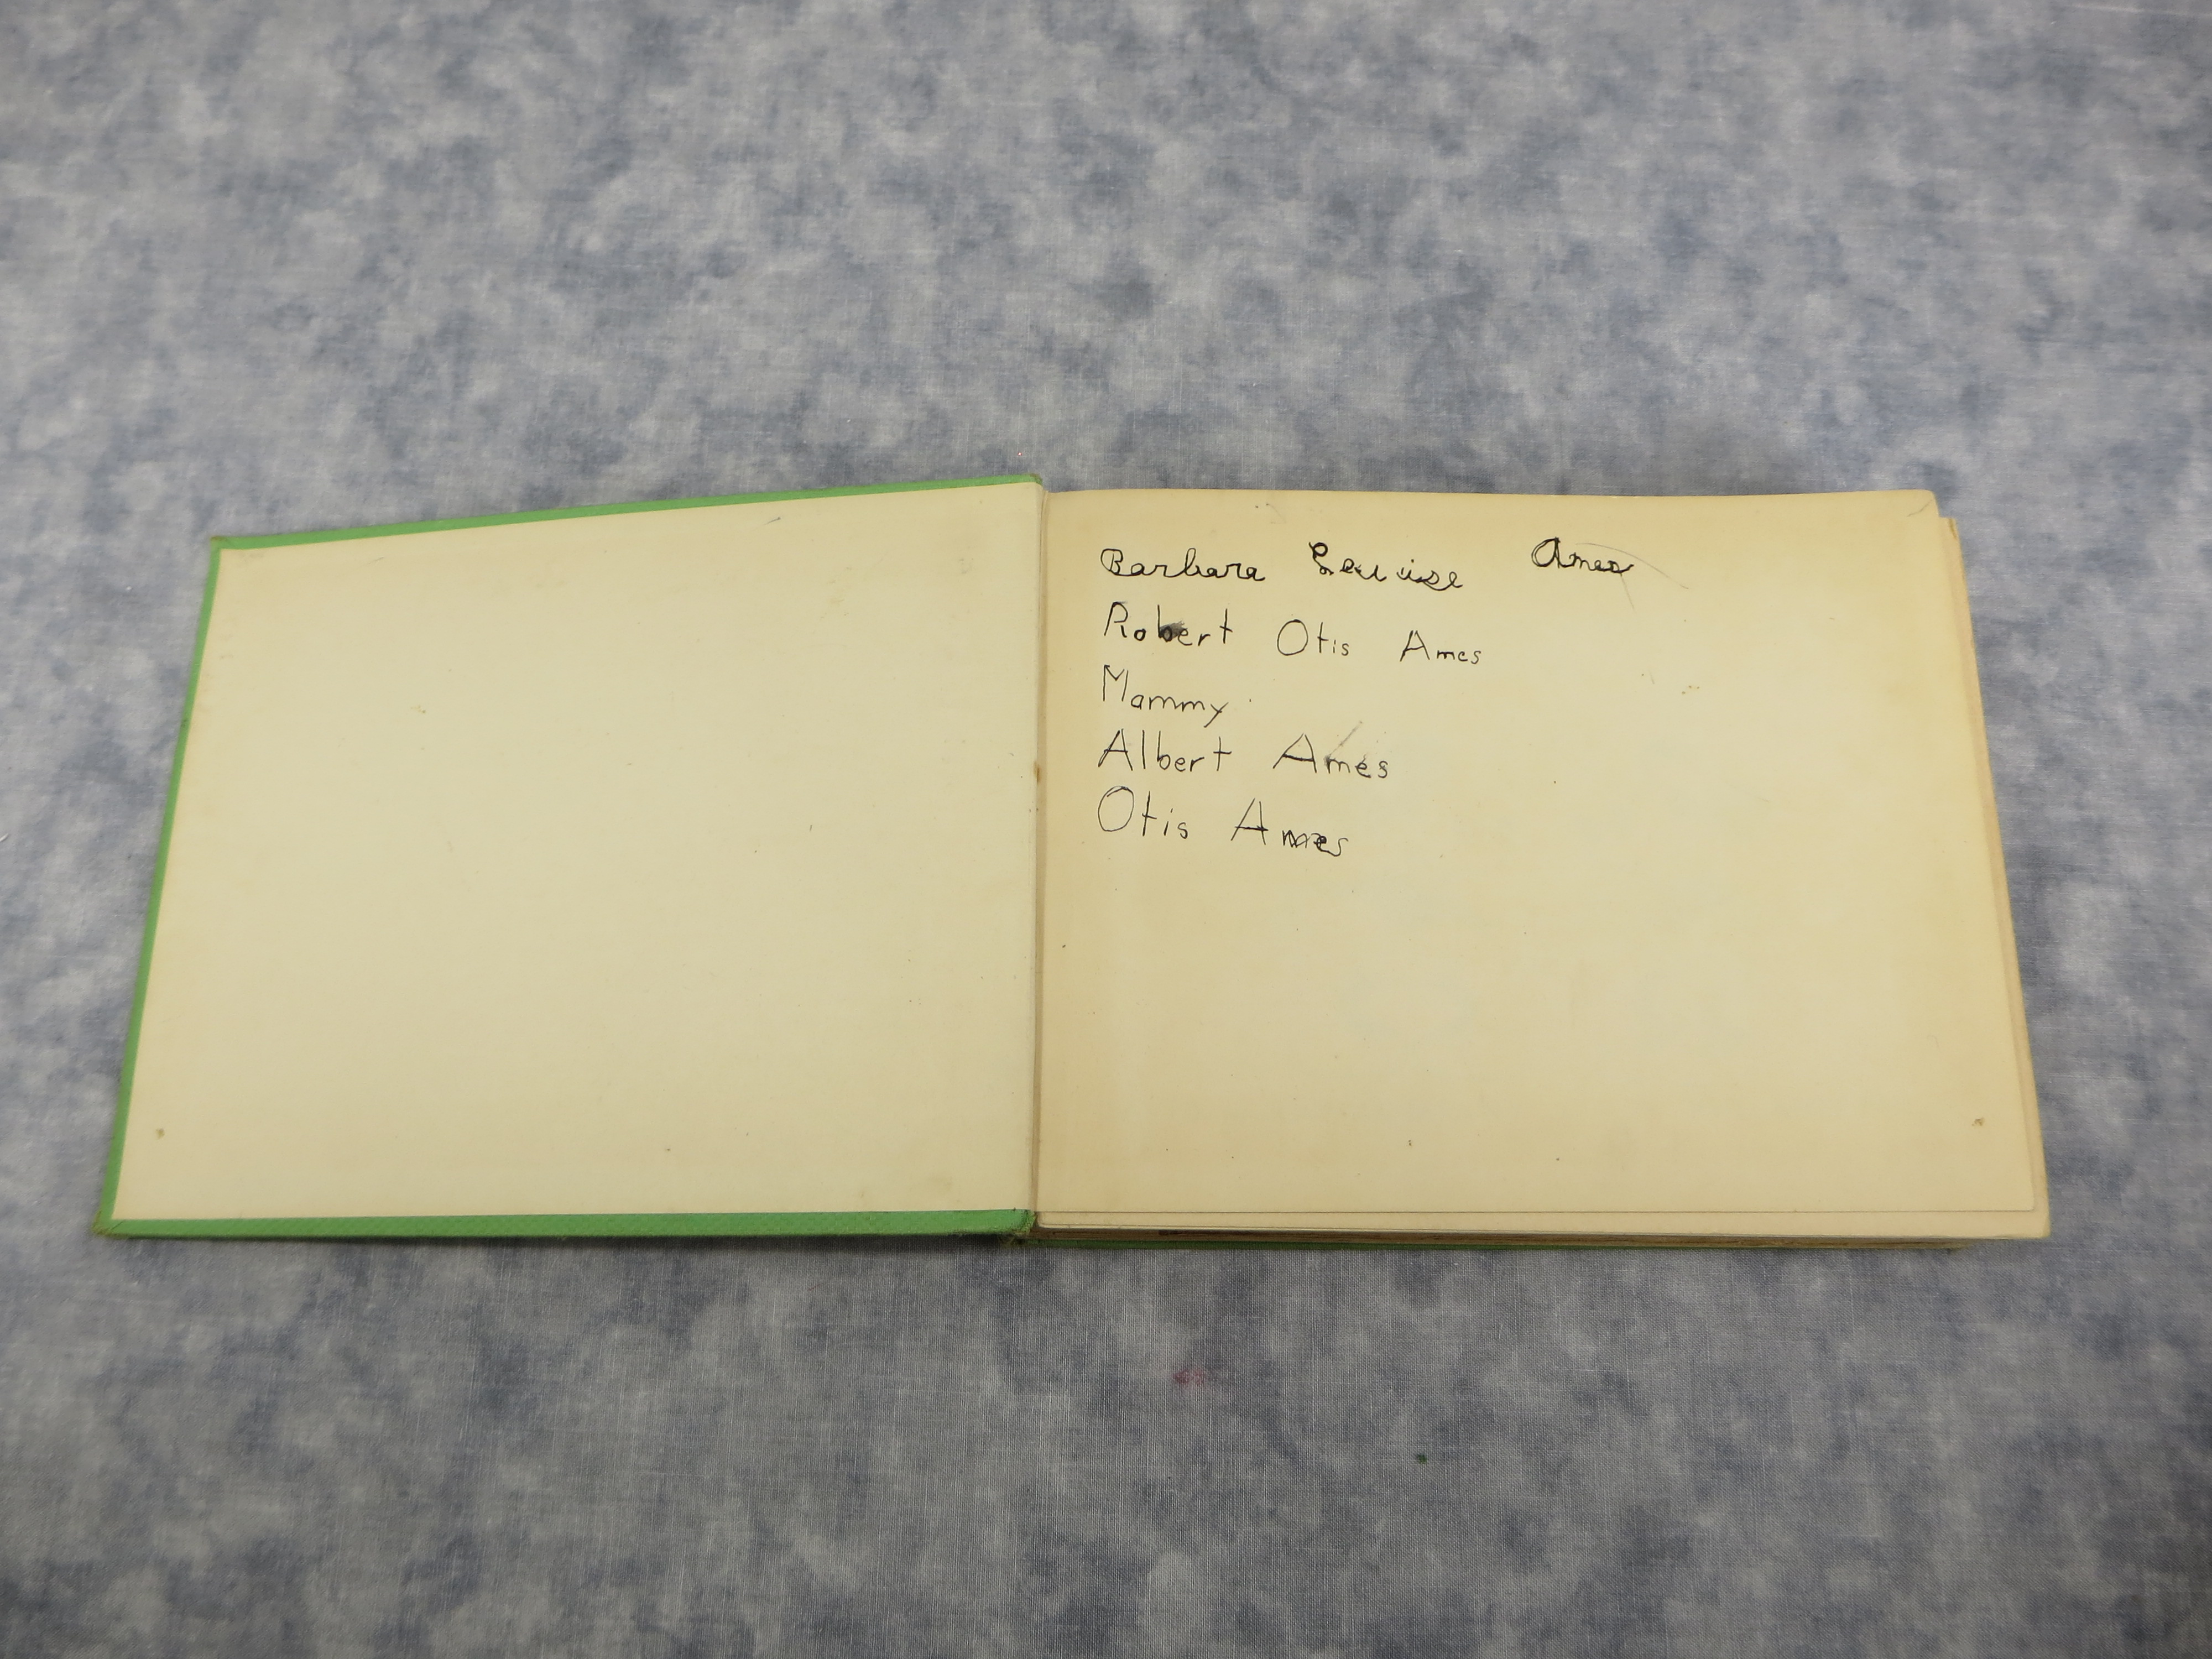 Barbara Louise Ames
Robert Otis Ames
Mammy
Albert Ames
Otis Ames